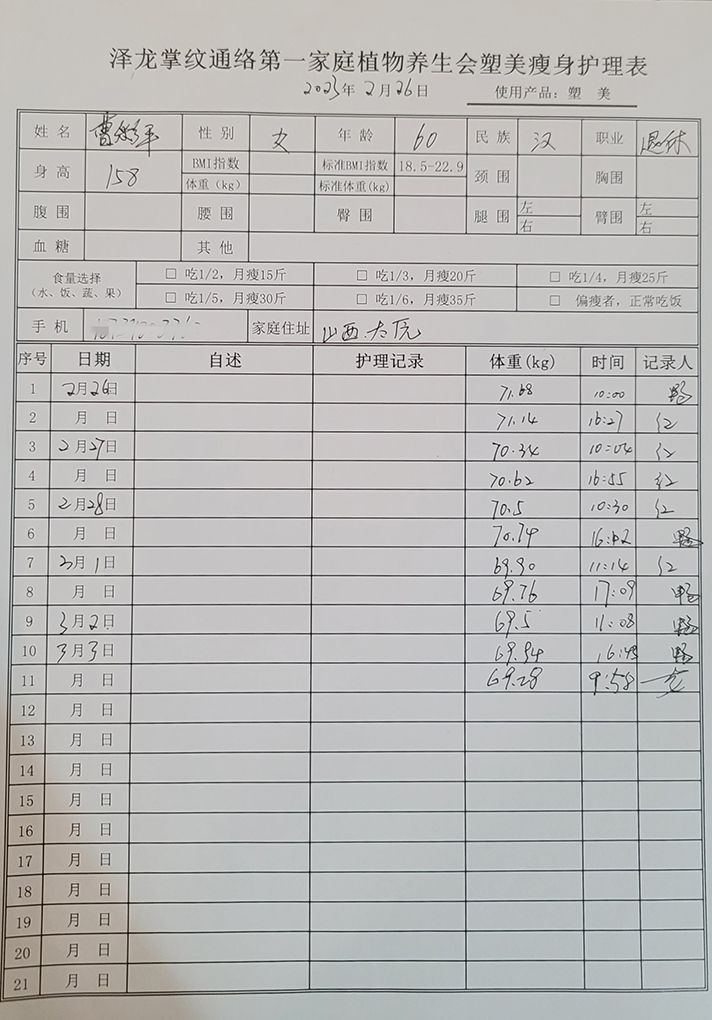 泽龙掌纹通络第一家庭植物养生会塑美瘦身护理表
2023年2月26日 使用产品：塑 美
姓 名 曹 性 别 女 年 龄 60 民 族 汉 职业 退休
身 高 158 BMI指数 标准BMI指数 18.5-22.9 颈 围 胸围
体重（kg） 标准体重(kg)
腹 围 腰 围 臀 围 腿 围 左 右 臂围 左 右
血 糖 其 他
食量选择（水、饭、蔬、果） □ 吃1/2，月瘦15斤 □ 吃1/3，月瘦20斤 □ 吃1/4，月瘦25斤
□ 吃1/5，月瘦30斤 □ 吃1/6，月瘦35斤 □ 偏瘦者，正常吃饭
手 机 家庭住址 山西.太原
序号 日期 自述 护理记录 体重(kg) 时间 记录人
1 2月26日 71.68 10:00
2 月 日 71.14 16:27 红
3 2月27日 70.34 10:04 红
4 月 日 70.62 16:55 红
5 2月28日 70.5 10:30 红
6 月 日 70.74 16:02
7 3月1日 69.90 11:14 红
8 月 日 69.76 17:09
9 3月2日 69.5 11:08
10 3月3日 69.94 16:45
11 月 日 69.28 9:58
12 月 日
13 月 日
14 月 日
15 月 日
16 月 日
17 月 日
18 月 日
19 月 日
20 月 日
21 月 日